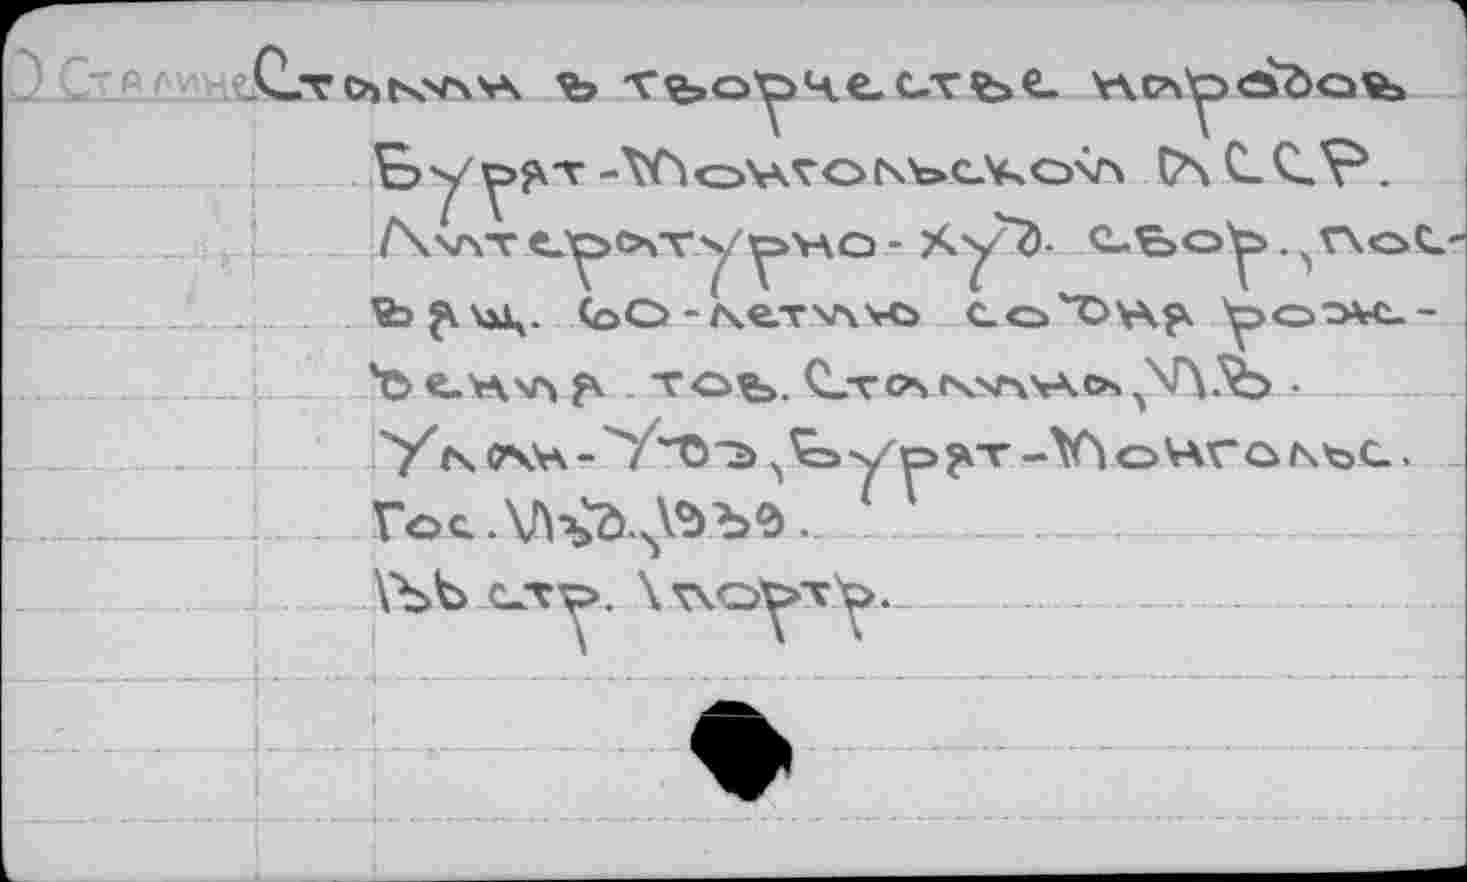 О Сталине Сталин в творчестве народов
Бурят-Монгольской АССР.
Литературно-худ. сбор., пос-
вящ. 60-летию со дня рож-
дения тов. Сталина, И.В.
Улан-Удэ, Бурят-Монгольс.
Гос. Изд., 1939.
133 стр. 1 портр.